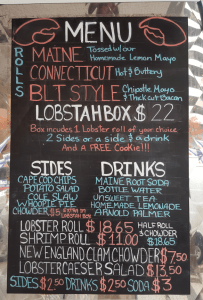 MENU
ROLLS
MAINE Tossed w/our Homemade Lemon Mayo
CONNECTICUT Hot & Buttery
BLT STYLE Chipotle Mayo & Thick cut Bacon
LOBSTAHBOX $22
Box includes 1 Lobster roll of your choice
2 Sides or a side & a drink
And a FREE Cookie!!!
SIDES
CAPE COD CHIPS
POTATO SALAD
COLE SLAW
WHOOPIE PIE
CHOWDER
LOBSTAH BOX
DRINKS
MAINE ROOT SODA
BOTTLE WATER
UNSWEET TEA
HOMEMADE LEMONADE
ARNOLD PALMER
LOBSTER ROLL $18.65
SHRIMP ROLL $11.00
HALF ROLL & CHOWDER $18.65
NEW ENGLAND CLAM CHOWDER $7.50
LOBSTER CAESER SALAD $13.50
SIDES $2.50 DRINKS $2.50 SODA $3